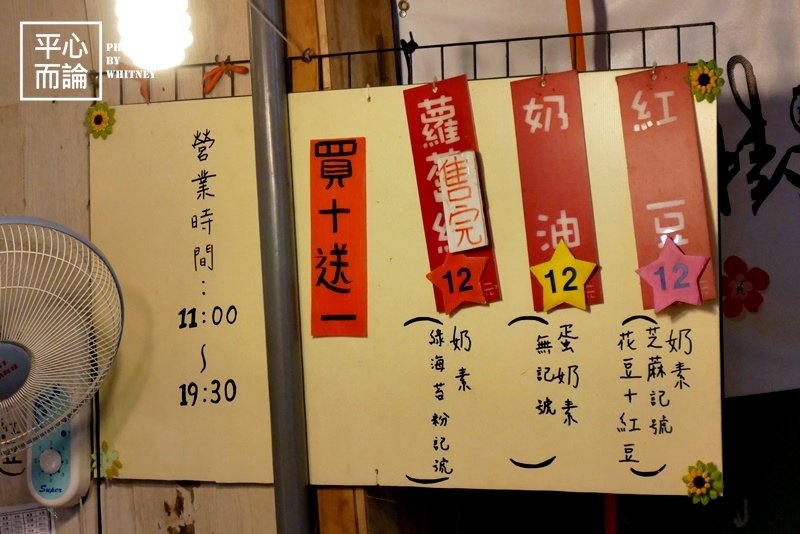 平心
而論
PH
BY
WHITNEY
營業時間：
11:00
～
19:30
買十送一
蘿蔔絲
售完
12
元
（奶素
綠海苔粉記號）
奶油
12
元
（蛋奶素
無記號）
紅豆
12
元
（奶素
芝蔴記號
花豆+紅豆）
Super